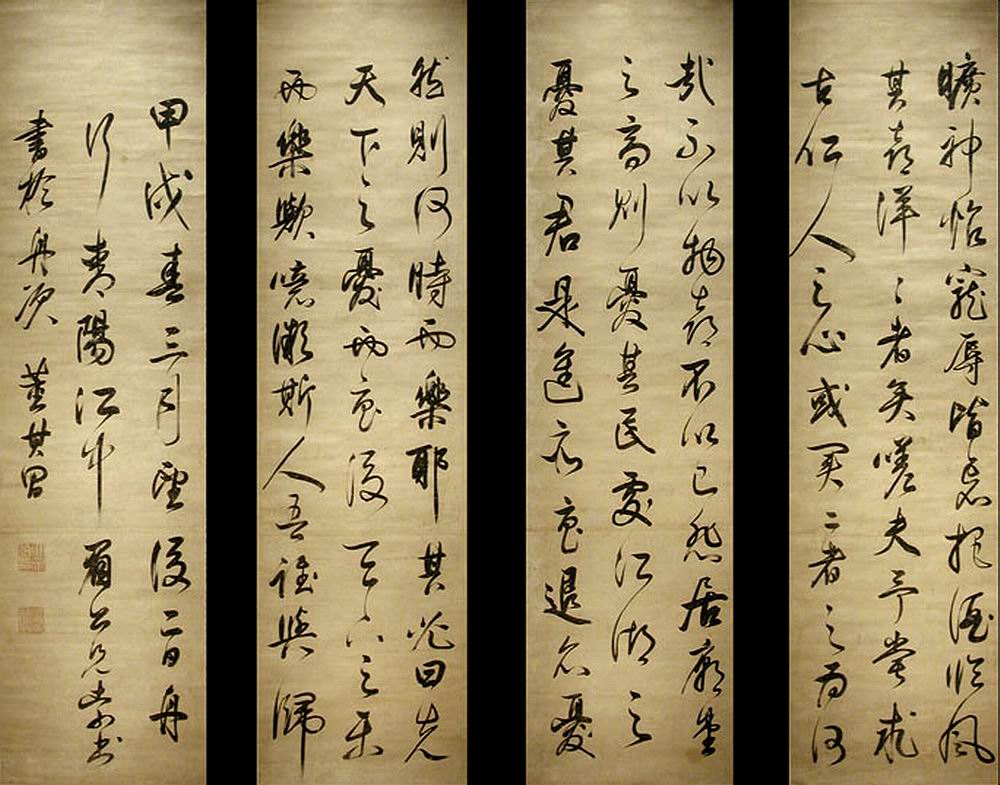 曠神怡寵辱皆忘把酒臨風
其喜洋〻者矣嗟夫予嘗求
古仁人之心或異二者之為何
哉不以物喜不以己悲居廟堂
之高則憂其民處江湖之
憂其君是進亦憂退亦憂
然則何時而樂耶其必曰先
天下之憂而憂後天下之樂
而樂歟噫微斯人吾誰與歸
甲戌春三月望後二日舟
行陽江中眉公兄索書
書於舟次 董其昌